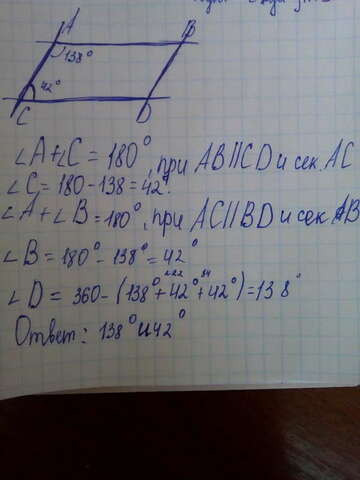 A
B
138°
42°
C
D
∠A+∠C = 180°, при AB||CD и сек. AC
∠C = 180-138=42°.
∠A+∠B=180°, при AC||BD и сек AB
∠B = 180° - 138° = 42°
∠D = 360-(138°+42°+42°)=138°
Ответ: 138° и 42°